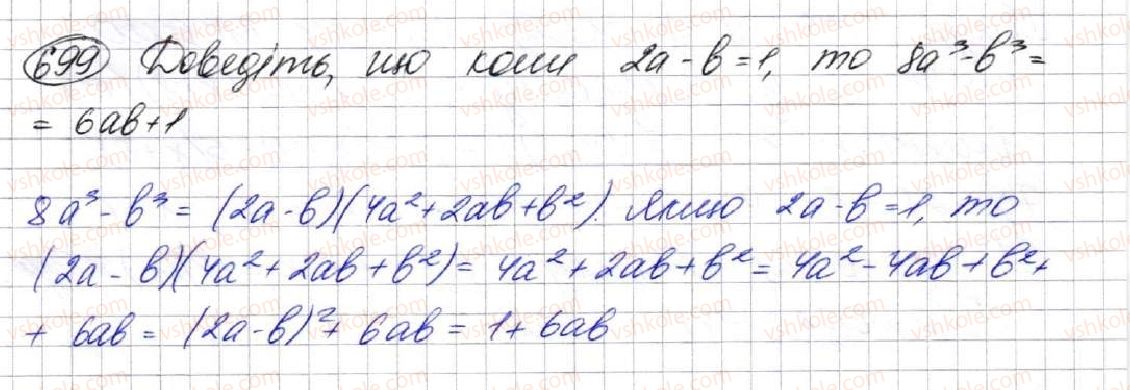 699 Доведіть, що коли 2a - b = 1, то 8a³ - b³ =
= 6ab + 1
8a³ - b³ = (2a - b)(4a² + 2ab + b²). Якщо 2a - b = 1, то
(2a - b)(4a² + 2ab + b²) = 4a² + 2ab + b² = 4a² - 4ab + b² +
+ 6ab = (2a - b)² + 6ab = 1 + 6ab